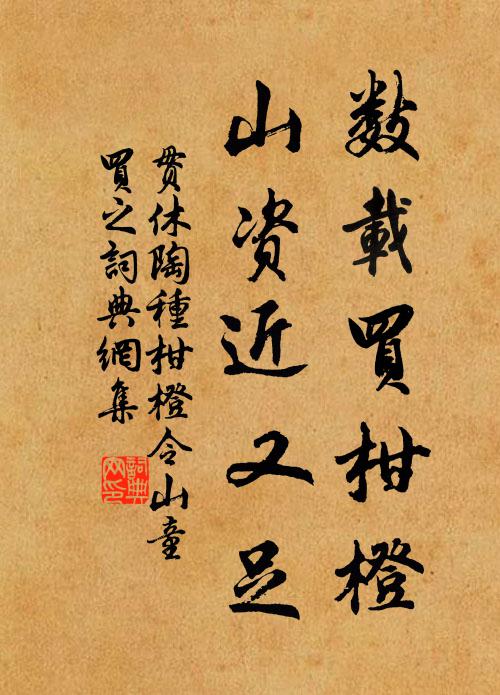 数載買柑橙
山资近又足
贯休陶種柑橙令山童
買之詞典網集
詞典网印